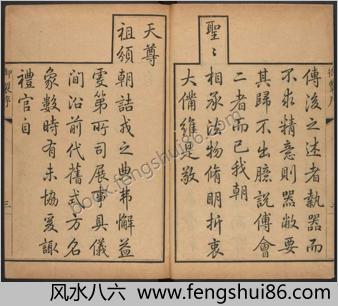 傳後之述者執器而
不求精意則器敝要
其歸不出臆說傅會
二者而已我朝
聖〻相承法物脩明折衷
大備維是敬
天尊
祖頒朝詰戎之典弗懈益
虔第所司展事具儀
間沿前代舊式方名
象數時有未協爰諏
禮官自
御製序
三
book.fengshui86.com
风水八六 www.fengshui86.com